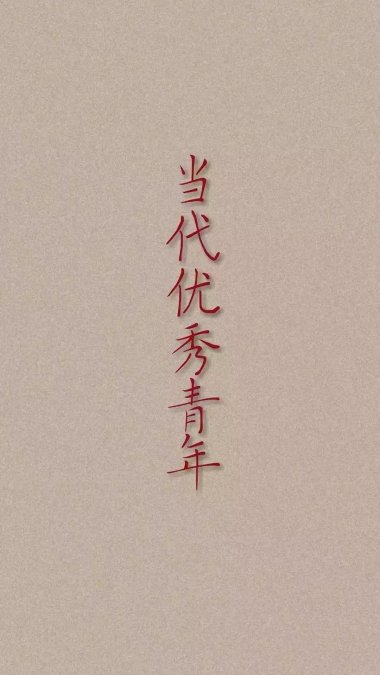 当代优秀青年